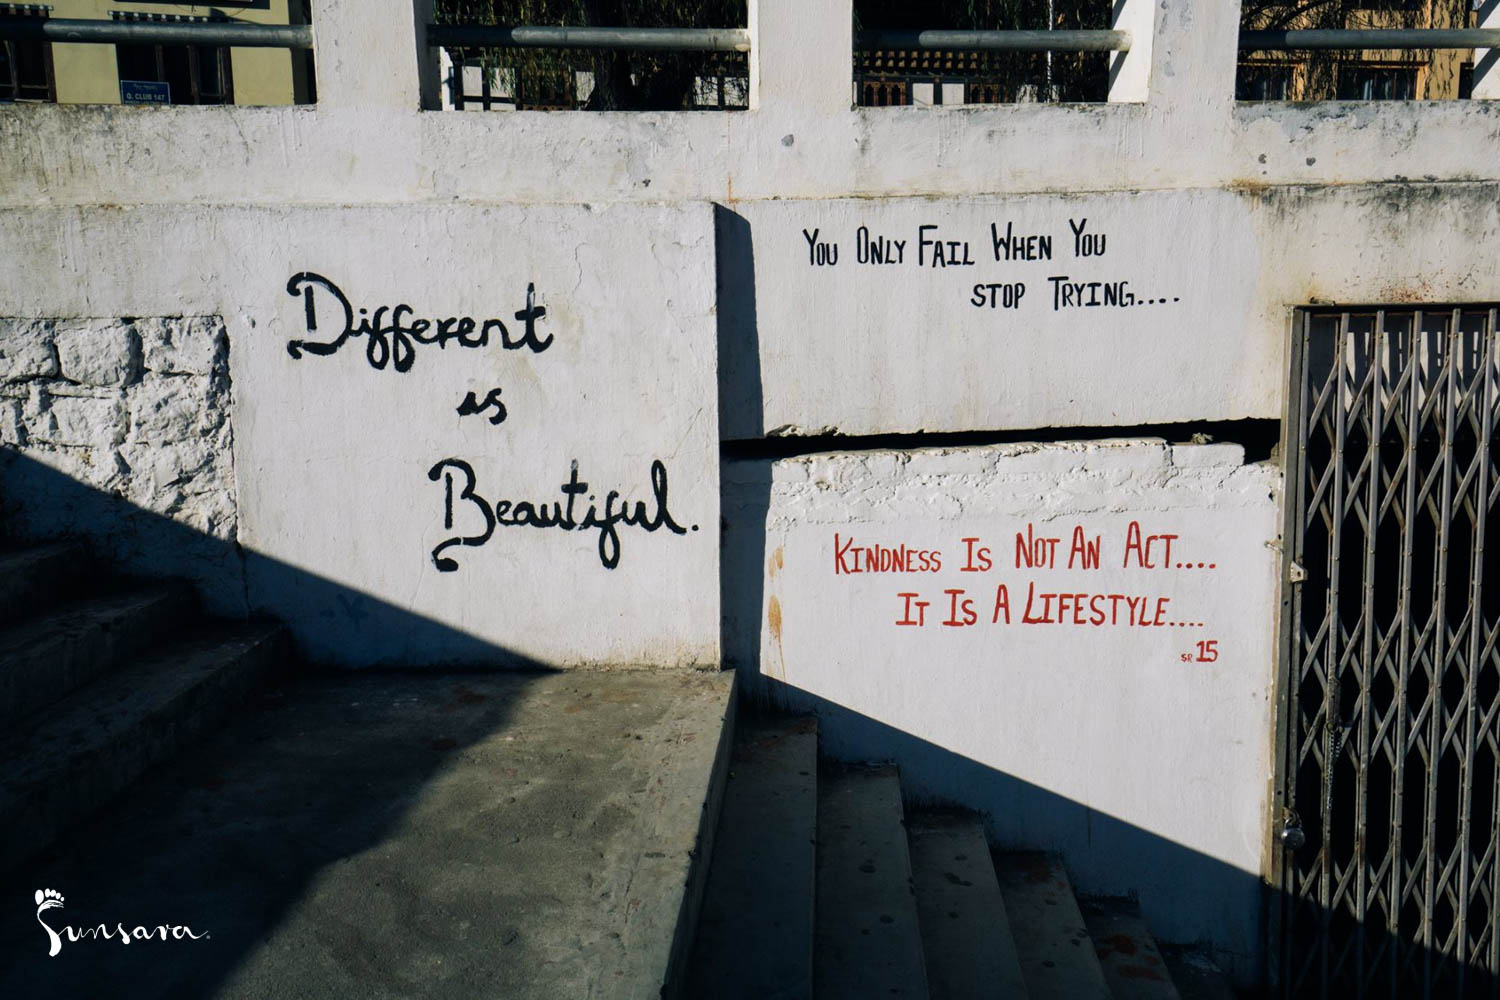 G. CLUB 147
Different
is
Beautiful.
YOU ONLY FAIL WHEN YOU
STOP TRYING....
KINDNESS IS NOT AN ACT....
IT IS A LIFESTYLE....
SR 15
Sunsara